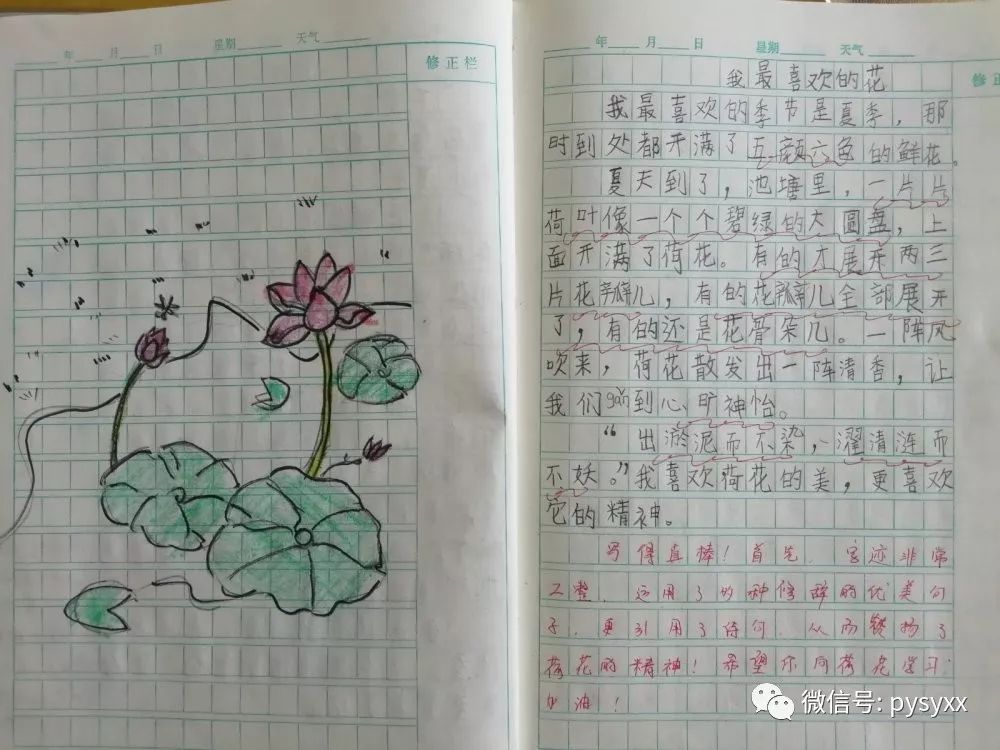 年 月 日 星期 天气
修正栏
年 月 日 星期 天气
修正
我最喜欢的花
我最喜欢的季节是夏季，那
时到处都开满了五颜六色的鲜花。
夏天到了，池塘里，一片片
荷叶像一个个碧绿的大圆盘，上
面开满了荷花。有的才展开两三
片花瓣儿，有的花瓣儿全部展开
了，有的还是花骨朵儿。一阵风
吹来，荷花散发出一阵清香，让
我们gǎn到心旷神怡。
“出淤泥而不染，濯清涟而
不妖。”我喜欢荷花的美，更喜欢
它的精神。
写得真棒！首先，字迹非常
工整，运用了多种修辞的优美句
子，更引用了诗句，从而赞扬了
荷花的精神！希望你向荷花学习，
加油！
微信号: pysyxx